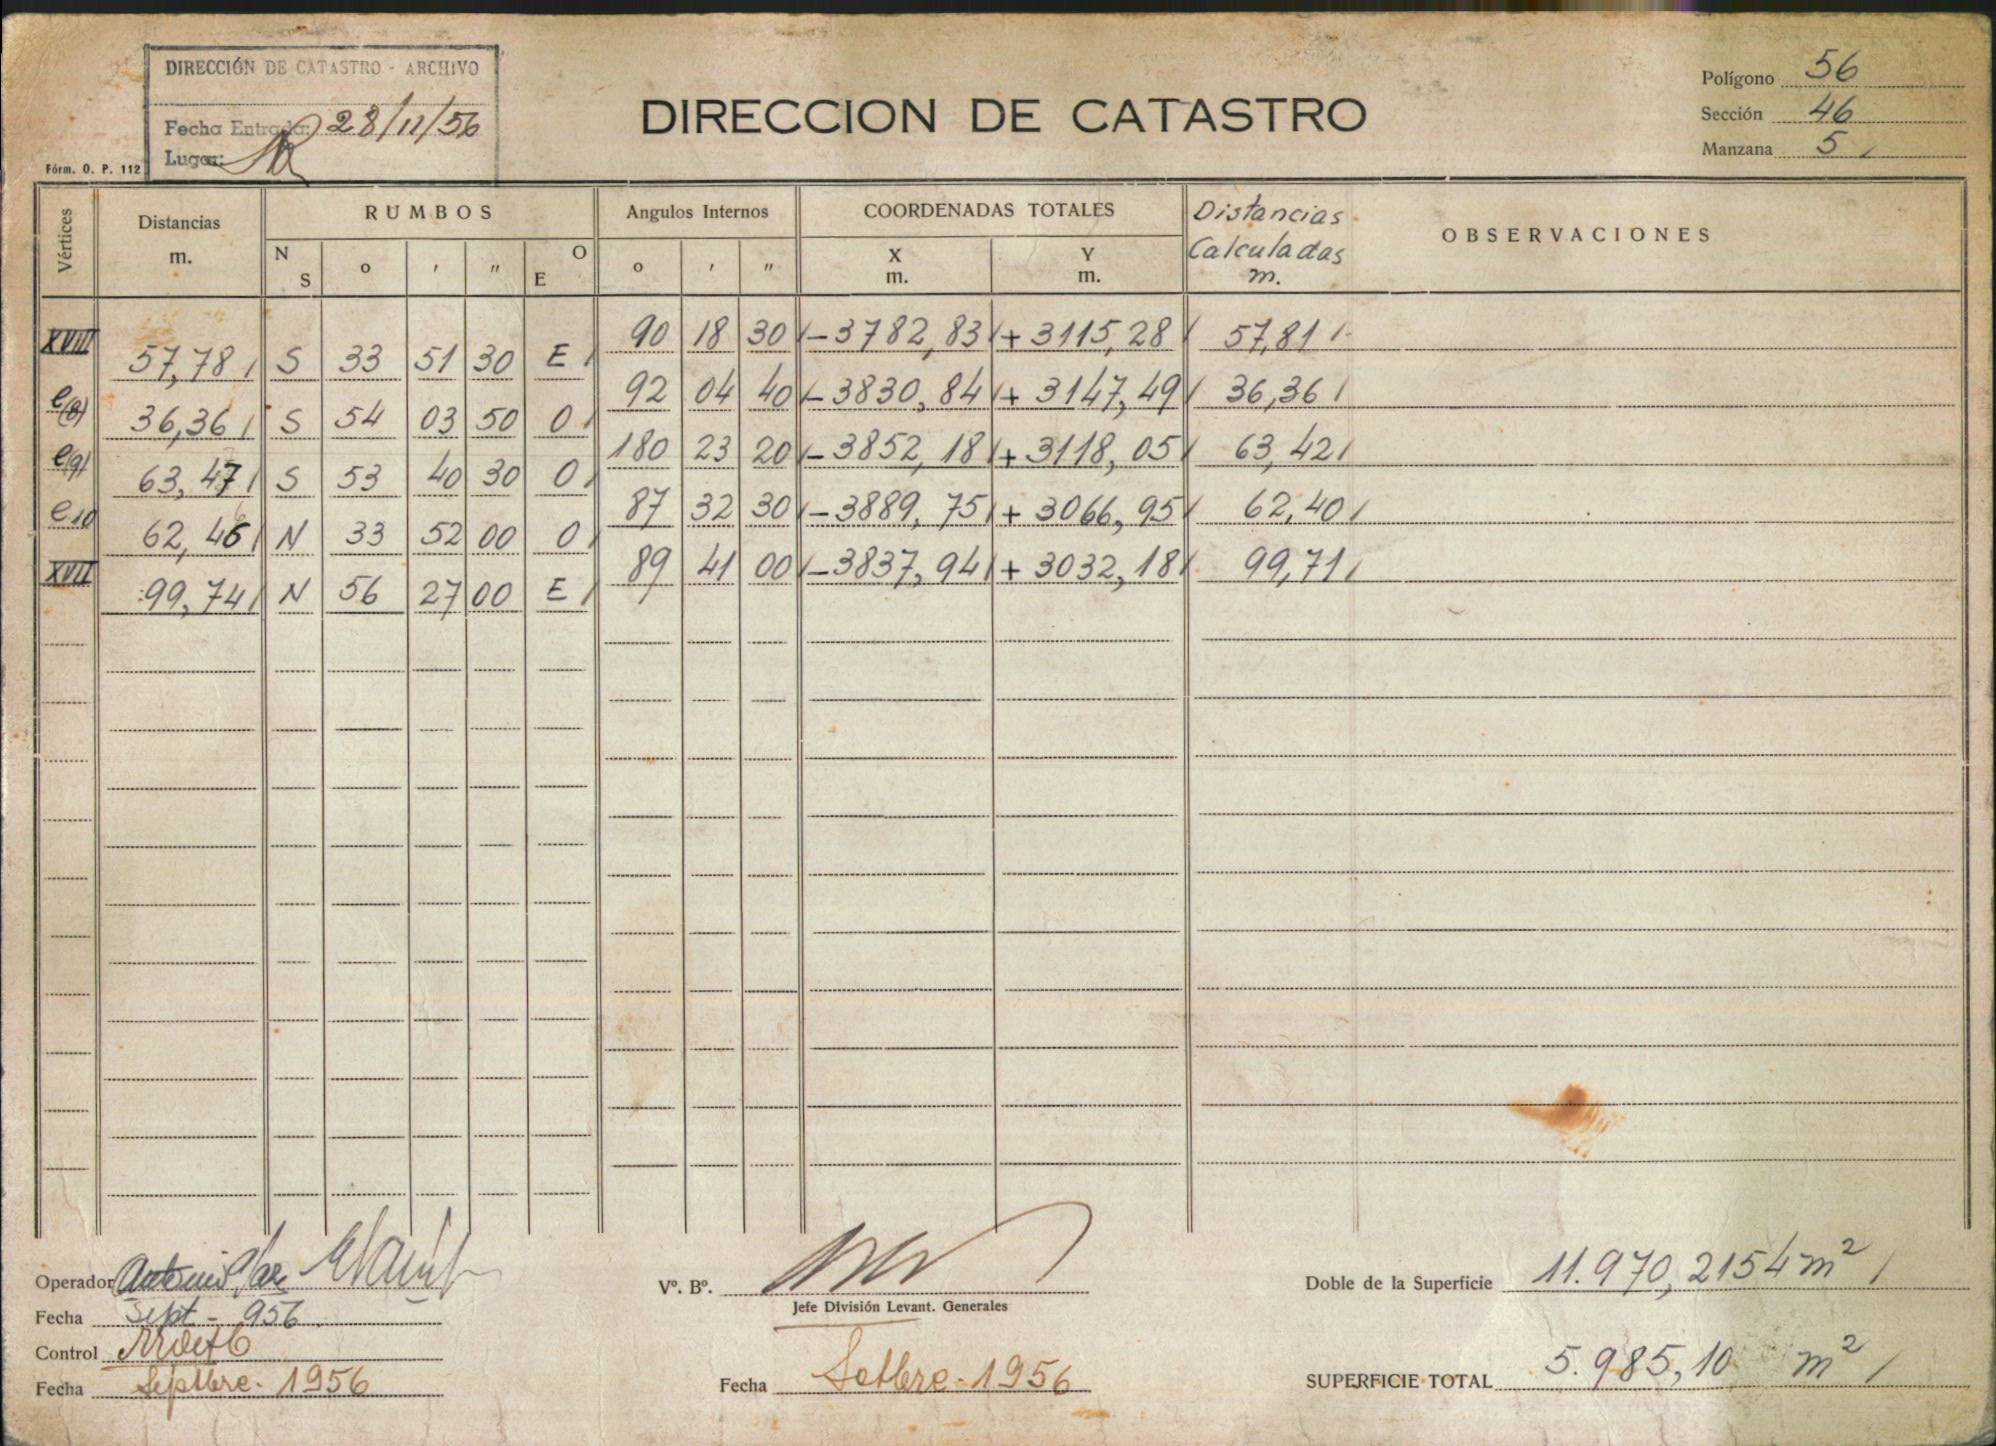 DIRECCIÓN DE CATASTRO - ARCHIVO
Fecha Entrada: 28/11/56
Lugar:
Fórm. O. P. 112
DIRECCION DE CATASTRO
Polígono 56
Sección 46
Manzana 5
Vértices Distancias m. RUMBOS Angulos Internos COORDENADAS TOTALES Distancias Calculadas m. OBSERVACIONES
N S o ' " E O o ' " X m. Y m.
XVIII 90 18 30 -3782,83 +3115,28 57,81
57,78 S 33 51 30 E
e(8) 92 04 40 -3830,84 +3147,49 36,36
36,36 S 54 03 50 O
e(9) 180 23 20 -3852,18 +3118,05 63,42
63,47 S 53 40 30 O
e10 87 32 30 -3889,75 +3066,95 62,40
62,46 N 33 52 00 O
XVII 89 41 00 -3837,94 +3032,18 99,71
99,74 N 56 27 00 E
Operador Antonio
Fecha Sept - 956
Control
Fecha Septbre - 1956
Vº. Bº.
Jefe División Levant. Generales
Fecha Setbre - 1956
Doble de la Superficie 11.970,2154 m²
SUPERFICIE TOTAL 5.985,10 m²